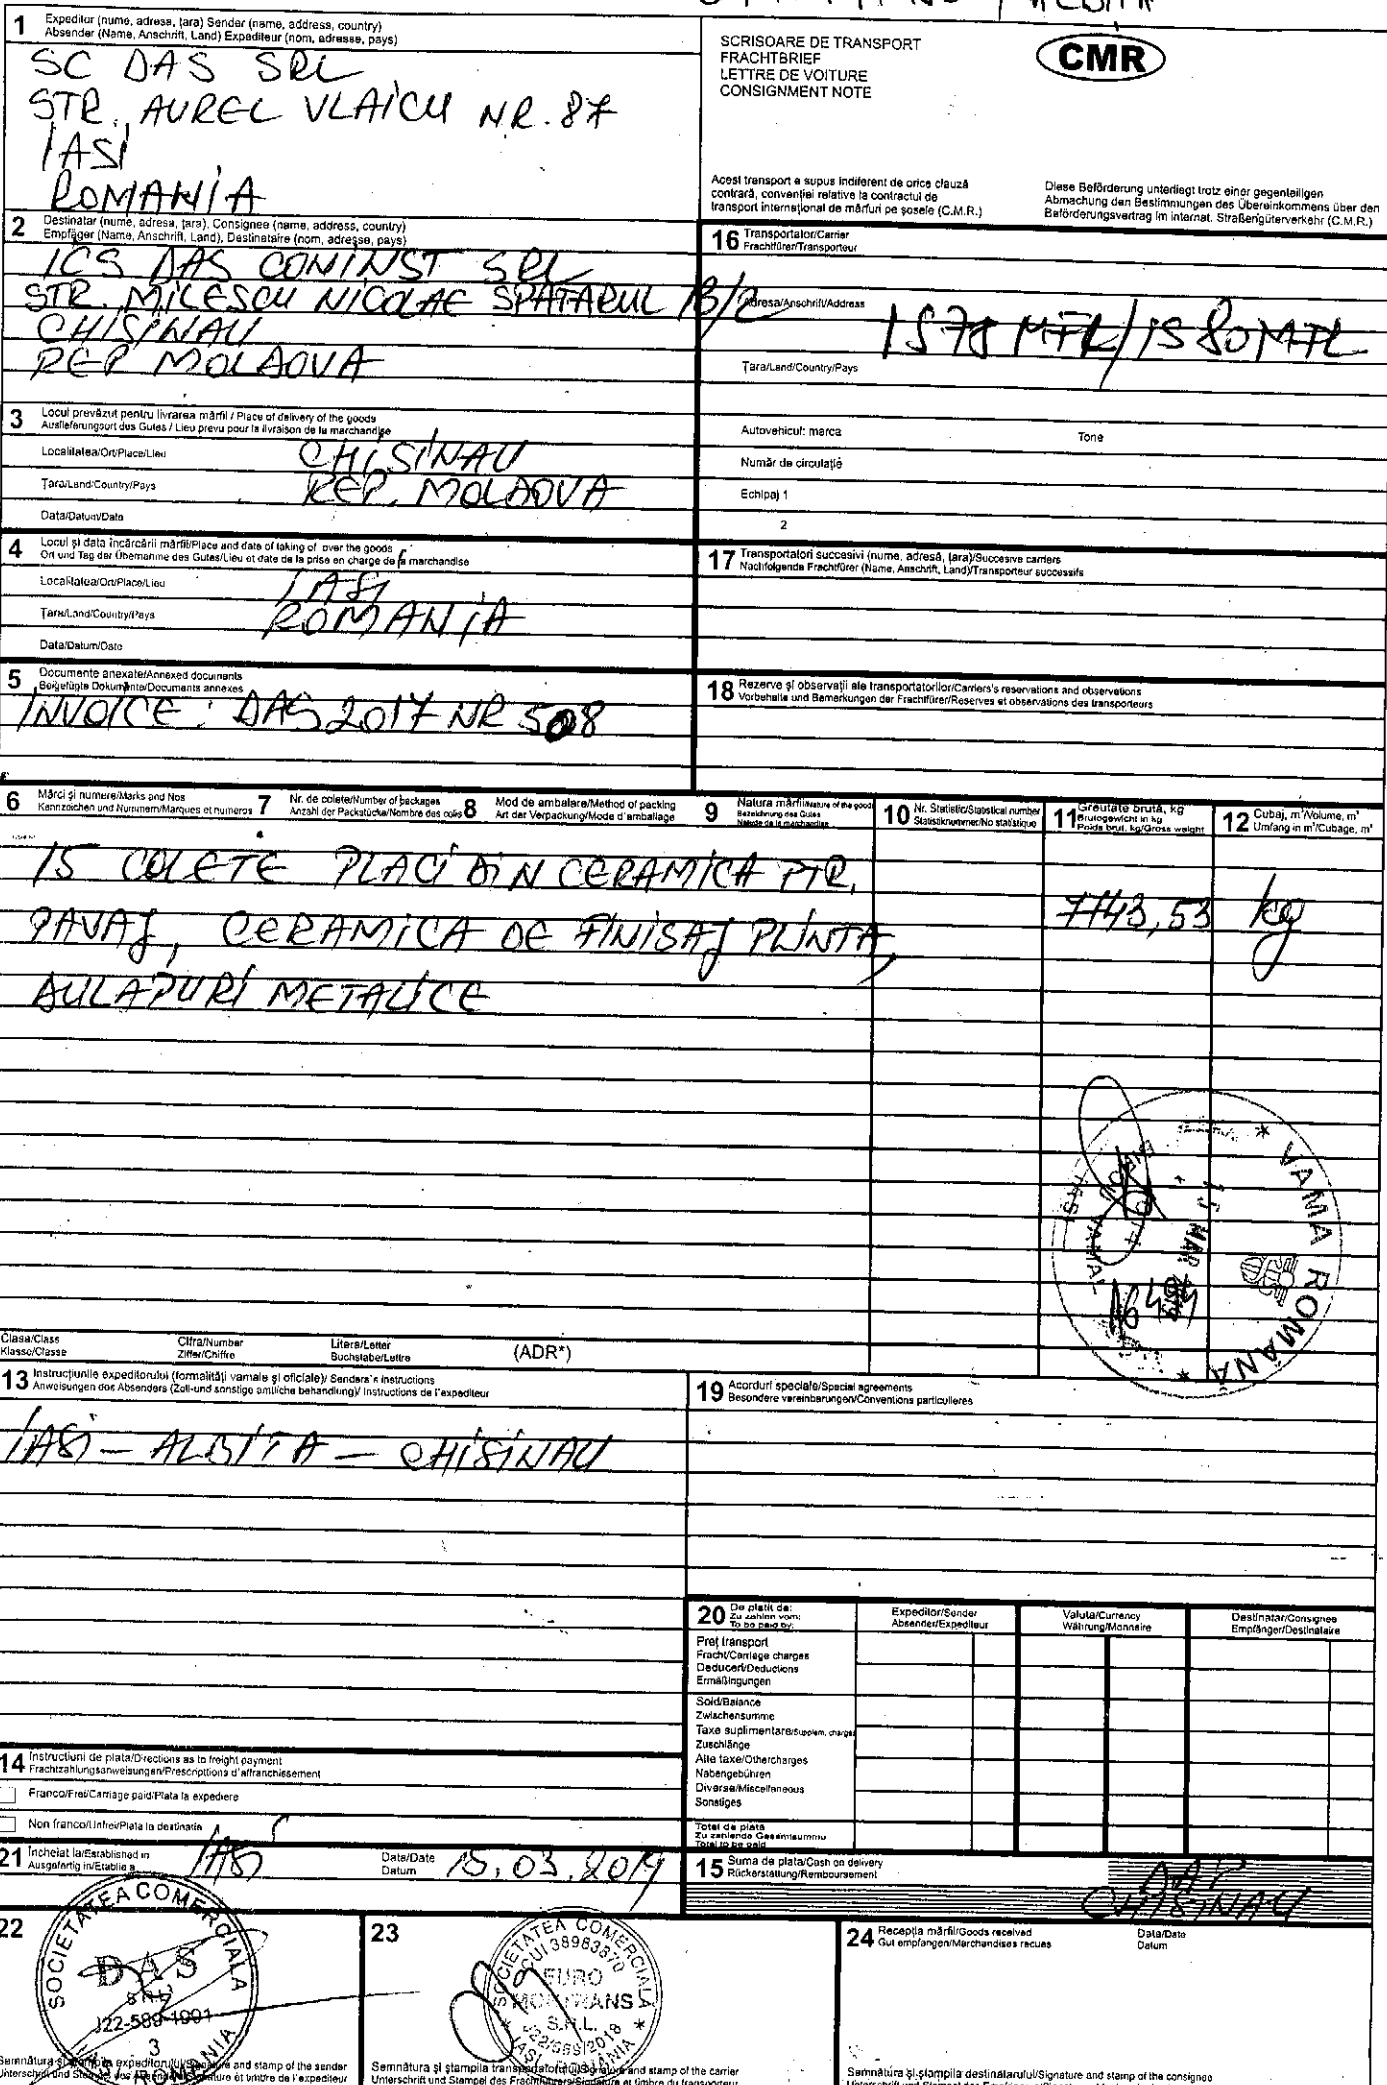 1 Expeditor (nume, adresa, țara) Sender (name, address, country)
Absender (Name, Anschrift, Land) Expediteur (nom, adresse, pays)
SC DAS SRL
STR. AUREL VLAICU NR. 87
IASI
ROMANIA
SCRISOARE DE TRANSPORT
FRACHTBRIEF
LETTRE DE VOITURE
CONSIGNMENT NOTE
CMR
Acest transport e supus indiferent de orice clauză
contrară, convenției relative la contractul de
transport internațional de mărfuri pe șosele (C.M.R.)
Diese Beförderung unterliegt trotz einer gegenteiligen
Abmachung den Bestimmungen des Übereinkommens über den
Beförderungsvertrag im internat. Straßengüterverkehr (C.M.R.)
2 Destinatar (nume, adresa, țara), Consignee (name, address, country)
Empfäger (Name, Anschrift, Land), Destinataire (nom, adresse, pays)
ICS DAS CONINST SRL
STR. MILESCU NICOLAE SPATARUL 13/2
CHISINAU
REP MOLDOVA
16 Transportator/Carrier
Frachtfürer/Transporteur
Adresa/Anschrift/Address
Țara/Land/Country/Pays
3 Locul prevăzut pentru livrarea mărfii / Place of delivery of the goods
Auslieferungsort des Gutes / Lieu prevu pour la livraison de la marchandise
Localitatea/Ort/Place/Lieu CHISINAU
Țara/Land/Country/Pays REP. MOLDOVA
Data/Datum/Date
Autovehicul: marca Tone
Număr de circulație
Echipaj 1
2
4 Locul și data încărcării mărfii/Place and date of taking of over the goods
Ort und Tag der Übernahme des Gutes/Lieu et date de la prise en charge de la marchandise
Localitatea/Ort/Place/Lieu IASI
Țara/Land/Country/Pays ROMANIA
Data/Datum/Date
17 Transportatori succesivi (nume, adresă, țara)/Succesive carriers
Nachfolgende Frachtfürer (Name, Anschrift, Land)/Transporteur successifs
5 Documente anexate/Annexed documents
Beigefügte Dokumente/Documents annexes
INVOICE: DAS 2017 NR 508
18 Rezerve și observații ale transportatorilor/Carriers's reservations and observations
Vorbehalte und Bemerkungen der Frachtfürer/Reserves et observations des transporteurs
6 Mărci și numere/Marks and Nos
Kennzeichen und Nummern/Marques et numeros
7 Nr. de colete/Number of packages
Anzahl der Packstücke/Nombre des colis
8 Mod de ambalare/Method of packing
Art der Verpackung/Mode d'amballage
9 Natura mărfii/Nature of the good
Bezeichnung des Gutes
Nature de la marchandise
10 Nr. Statistic/Statistical number
Statistiknummer/No statistique
11 Greutate brută, kg
Brutogewicht in kg
Poids brut, kg/Gross weight
12 Cubaj, m³/Volume, m³
Umfang in m³/Cubage, m³
15 COLETE PLACI DIN CERAMICA PTR.
PAVAJ, CERAMICA DE FINISAJ PLINTA,
DULAPURI METALICE
7143,53 kg
VAMA ROMANĂ
Clasa/Class
Klasse/Classe
Cifra/Number
Ziffer/Chiffre
Litera/Letter
Buchstabe/Lettre
(ADR*)
13 Instrucțiunile expeditorului (formalități vamale și oficiale)/ Senders's instructions
Anweisungen des Absenders (Zoll-und sonstige amtliche behandlung)/ Instructions de l'expediteur
IASI - ALBITA - CHISINAU
19 Acorduri speciale/Special agreements
Besondere vereinbarungen/Conventions particulieres
20 De platit de:
Zu zahlen vom:
To be paid by:
Expeditor/Sender
Absender/Expediteur
Valuta/Currency
Währung/Monnaire
Destinatar/Consignee
Empfänger/Destinataire
Preț transport
Fracht/Carriage charges
Deduceri/Deductions
Ermäßingungen
Sold/Balance
Zwischensumme
Taxe suplimentare/Supplem. charges
Zuschlänge
Alte taxe/Othercharges
Nabengebühren
Diverse/Miscellaneous
Sonstiges
Total de plata
Zu zahlende Gesamtsumme
Total to be paid
14 Instrucțiuni de plata/Directions as to freight payment
Frachtzahlungsanweisungen/Prescripttions d'affranchissement
Franco/Frei/Carriage paid/Plata la expediere
Non franco/Unfrei/Plata la destinatie
21 Incheiat la/Established in
Ausgefertig in/Etablie a IASI
Data/Date
Datum 15.03.2019
15 Suma de plata/Cash on delivery
Rückerstattung/Remboursement
CHISINAU
22
SOCIETATEA COMERCIALA
DAS
SRL
J22-589-1991
3
IASI-ROMANIA
Semnătura și stampila expeditorului/Signature and stamp of the sender
23
SOCIETATEA COMERCIALA
CUI 38983870
EURO
TRANS
S.R.L.
IASI ROMANIA
Semnătura și ștampila transportatorului/Signature and stamp of the carrier
24 Recepția mărfii/Goods received
Gut empfangen/Marchandises recues
Data/Date
Datum
Semnătura și ștampila destinatarului/Signature and stamp of the consignee